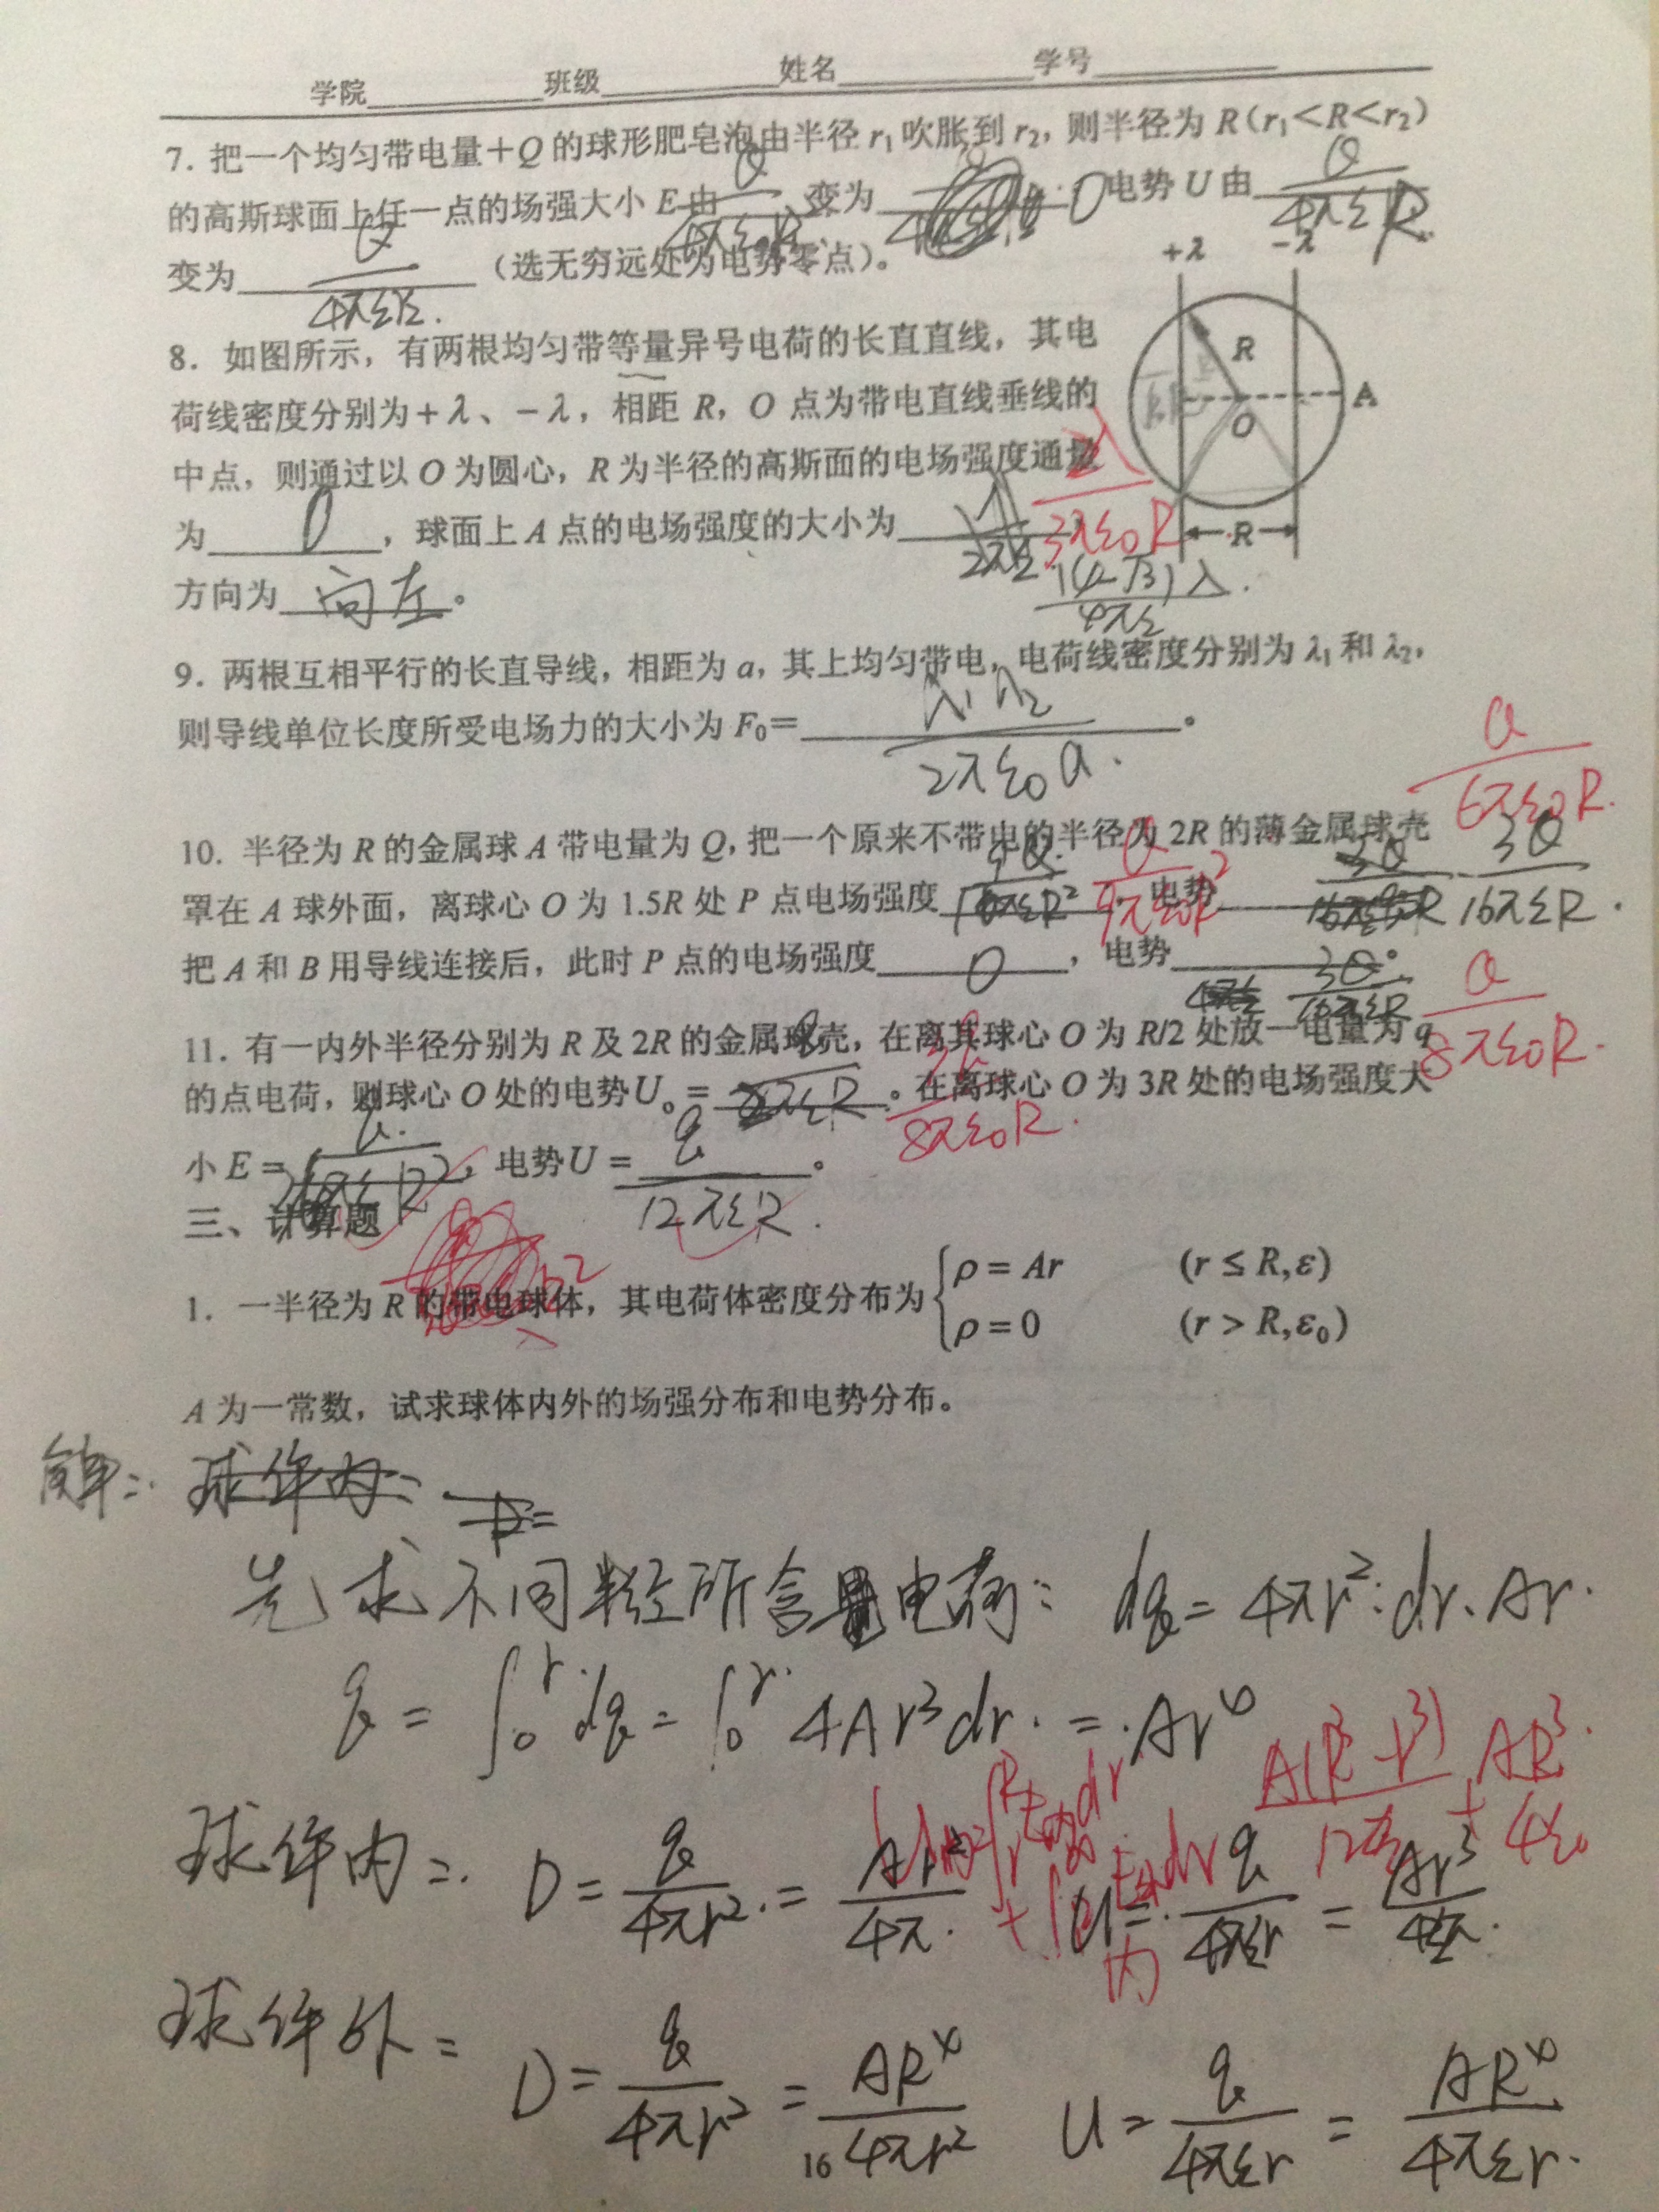 学院 班级 姓名 学号
7. 把一个均匀带电量+Q 的球形肥皂泡由半径 r₁ 吹胀到 r₂, 则半径为 R(r₁<R<r₂)
的高斯球面上任一点的场强大小 E 由 变为 0 电势 U 由 Q/4πεR
变为 Q/4πεr₂. (选无穷远处为电势零点)。
+λ -λ
8. 如图所示, 有两根均匀带等量异号电荷的长直直线, 其电
荷线密度分别为+λ、-λ, 相距 R, O 点为带电直线垂线的
中点, 则通过以 O 为圆心, R 为半径的高斯面的电场强度通量
为 0 , 球面上 A 点的电场强度的大小为 λ/3πε₀R
方向为 向左 。
R
O
A
R
9. 两根互相平行的长直导线, 相距为 a, 其上均匀带电, 电荷线密度分别为 λ₁ 和 λ₂,
则导线单位长度所受电场力的大小为 F₀= λ₁λ₂/2πε₀a. 。
10. 半径为 R 的金属球 A 带电量为 Q, 把一个原来不带电的半径为 2R 的薄金属球壳
罩在 A 球外面, 离球心 O 为 1.5R 处 P 点电场强度 Q/9πε₀R² , 电势 3Q/16πεR. Q/6πε₀R.
把 A 和 B 用导线连接后, 此时 P 点的电场强度 0 , 电势 3Q/16πεR 。 Q/8πε₀R.
11. 有一内外半径分别为 R 及 2R 的金属球壳, 在离其球心 O 为 R/2 处放一电量为 q
的点电荷, 则球心 O 处的电势 U₀= q/8πεR 。 3q/8πε₀R. 在离球心 O 为 3R 处的电场强度大
小 E= , 电势 U= q/12πεR. 。
三、计算题
1. 一半径为 R 的带电球体, 其电荷体密度分布为 ρ=Ar (r≤R,ε)
ρ=0 (r>R,ε₀)
A 为一常数, 试求球体内外的场强分布和电势分布。
解: 球体内: D=
先求不同半径所含电荷: dq=4πr²·dr·Ar.
q=∫₀ʳdq=∫₀ʳ4Ar³dr.=Ar⁴
A(R³-r³)/12ε+AR³/4ε₀
球体内: D=q/4πr²=Ar²/4π. U内=q/4πεr=Ar³/4επ.
球体外: D=q/4πr²=AR⁴/4πr² U=q/4πεr=AR⁴/4πεr.
16